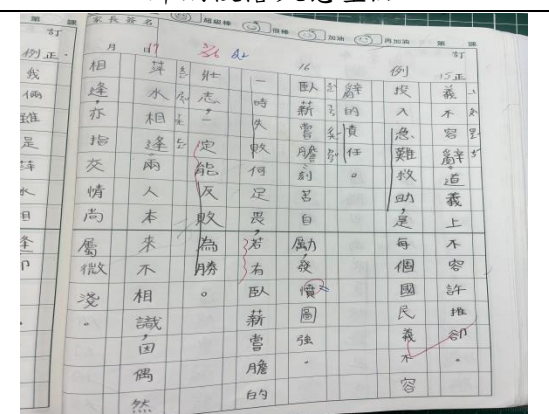 家長簽名 超級棒 很棒 加油 再加油 第 課
第 課
月
訂
15 正
義不容辭:道義上不容許推卻。
例 投入急難救助,是每個國民義不容
辭的責任。
16
臥薪嘗膽:刻苦自勵,發憤圖強。
一時失敗何足畏,若有臥薪嘗膽的
壯志,一定能反敗為勝。
17
萍水相逢:兩人本來不相識,因偶然
相逢,亦指交情尚屬微淺。
訂
正
例
我
倆
雖
是
萍
水
相
逢